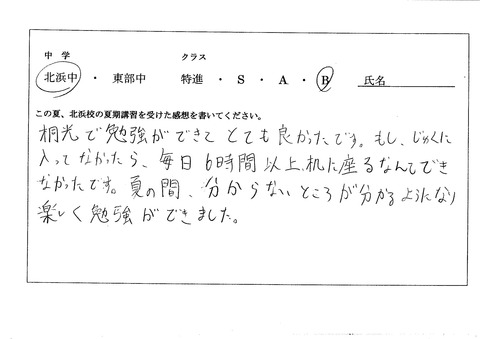 中学 クラス
北浜中 ・ 東部中 特進 ・ S ・ A ・ B 氏名
この夏、北浜校の夏期講習を受けた感想を書いてください。
桐光で勉強ができて とても良かったです。もし、じゅくに
入ってなかったら、毎日6時間以上、机に座るなんてでき
なかったです。夏の間、分からないところが分かるようになり
楽しく勉強ができました。